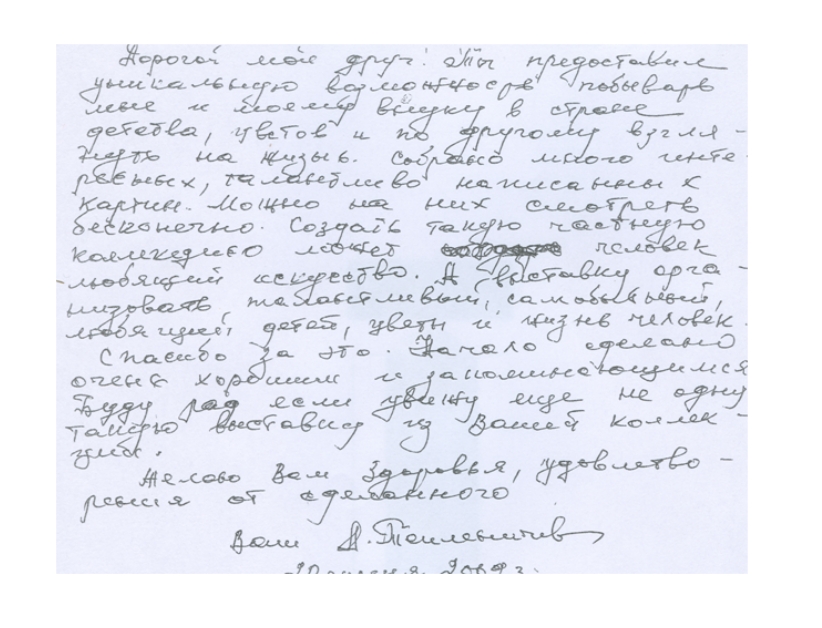 Дорогой мой друг! Ты предоставил
уникальную возможность побывать
мне и моему внуку в стране
детства, цветов и по другому взгля-
нуть на жизнь. Собрано много инте-
ресных, талантливо написанных
картин. Можно на них смотреть
бесконечно. Создать такую частную
коллекцию может человек
любящий искусство. А выставку орга-
низовать, талантливый, самобытный,
любящий детей, цветы и жизнь человек.
Спасибо за это. Начало сделано
очень хорошим и запоминающимся
Буду рад если увижу еще не одну
такую выставку из Вашей коллек-
ции.
Желаю Вам здоровья, удовлетво-
рения от сделанного
Ваш
2009 г.